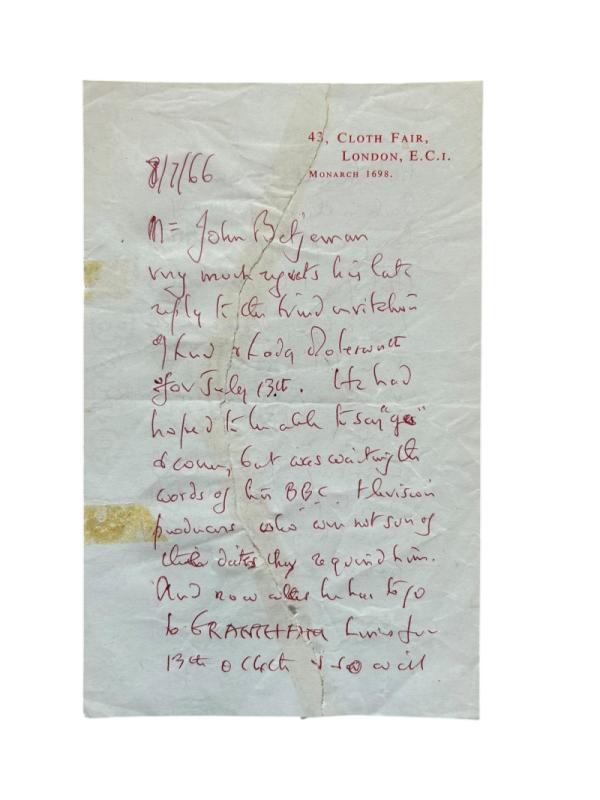 43, CLOTH FAIR,
LONDON, E.C.1.
MONARCH 1698.
8/7/66
Mr John Betjeman
very much regrets his late
reply to the kind invitation
of Lord & Lady
for July 13th. He had
hoped to be able to say "yes"
& come, but was waiting the
words of his BBC television
producers who were not sure of
the dates they required him.
And now alas he has to go
to GRANTHAM
13th